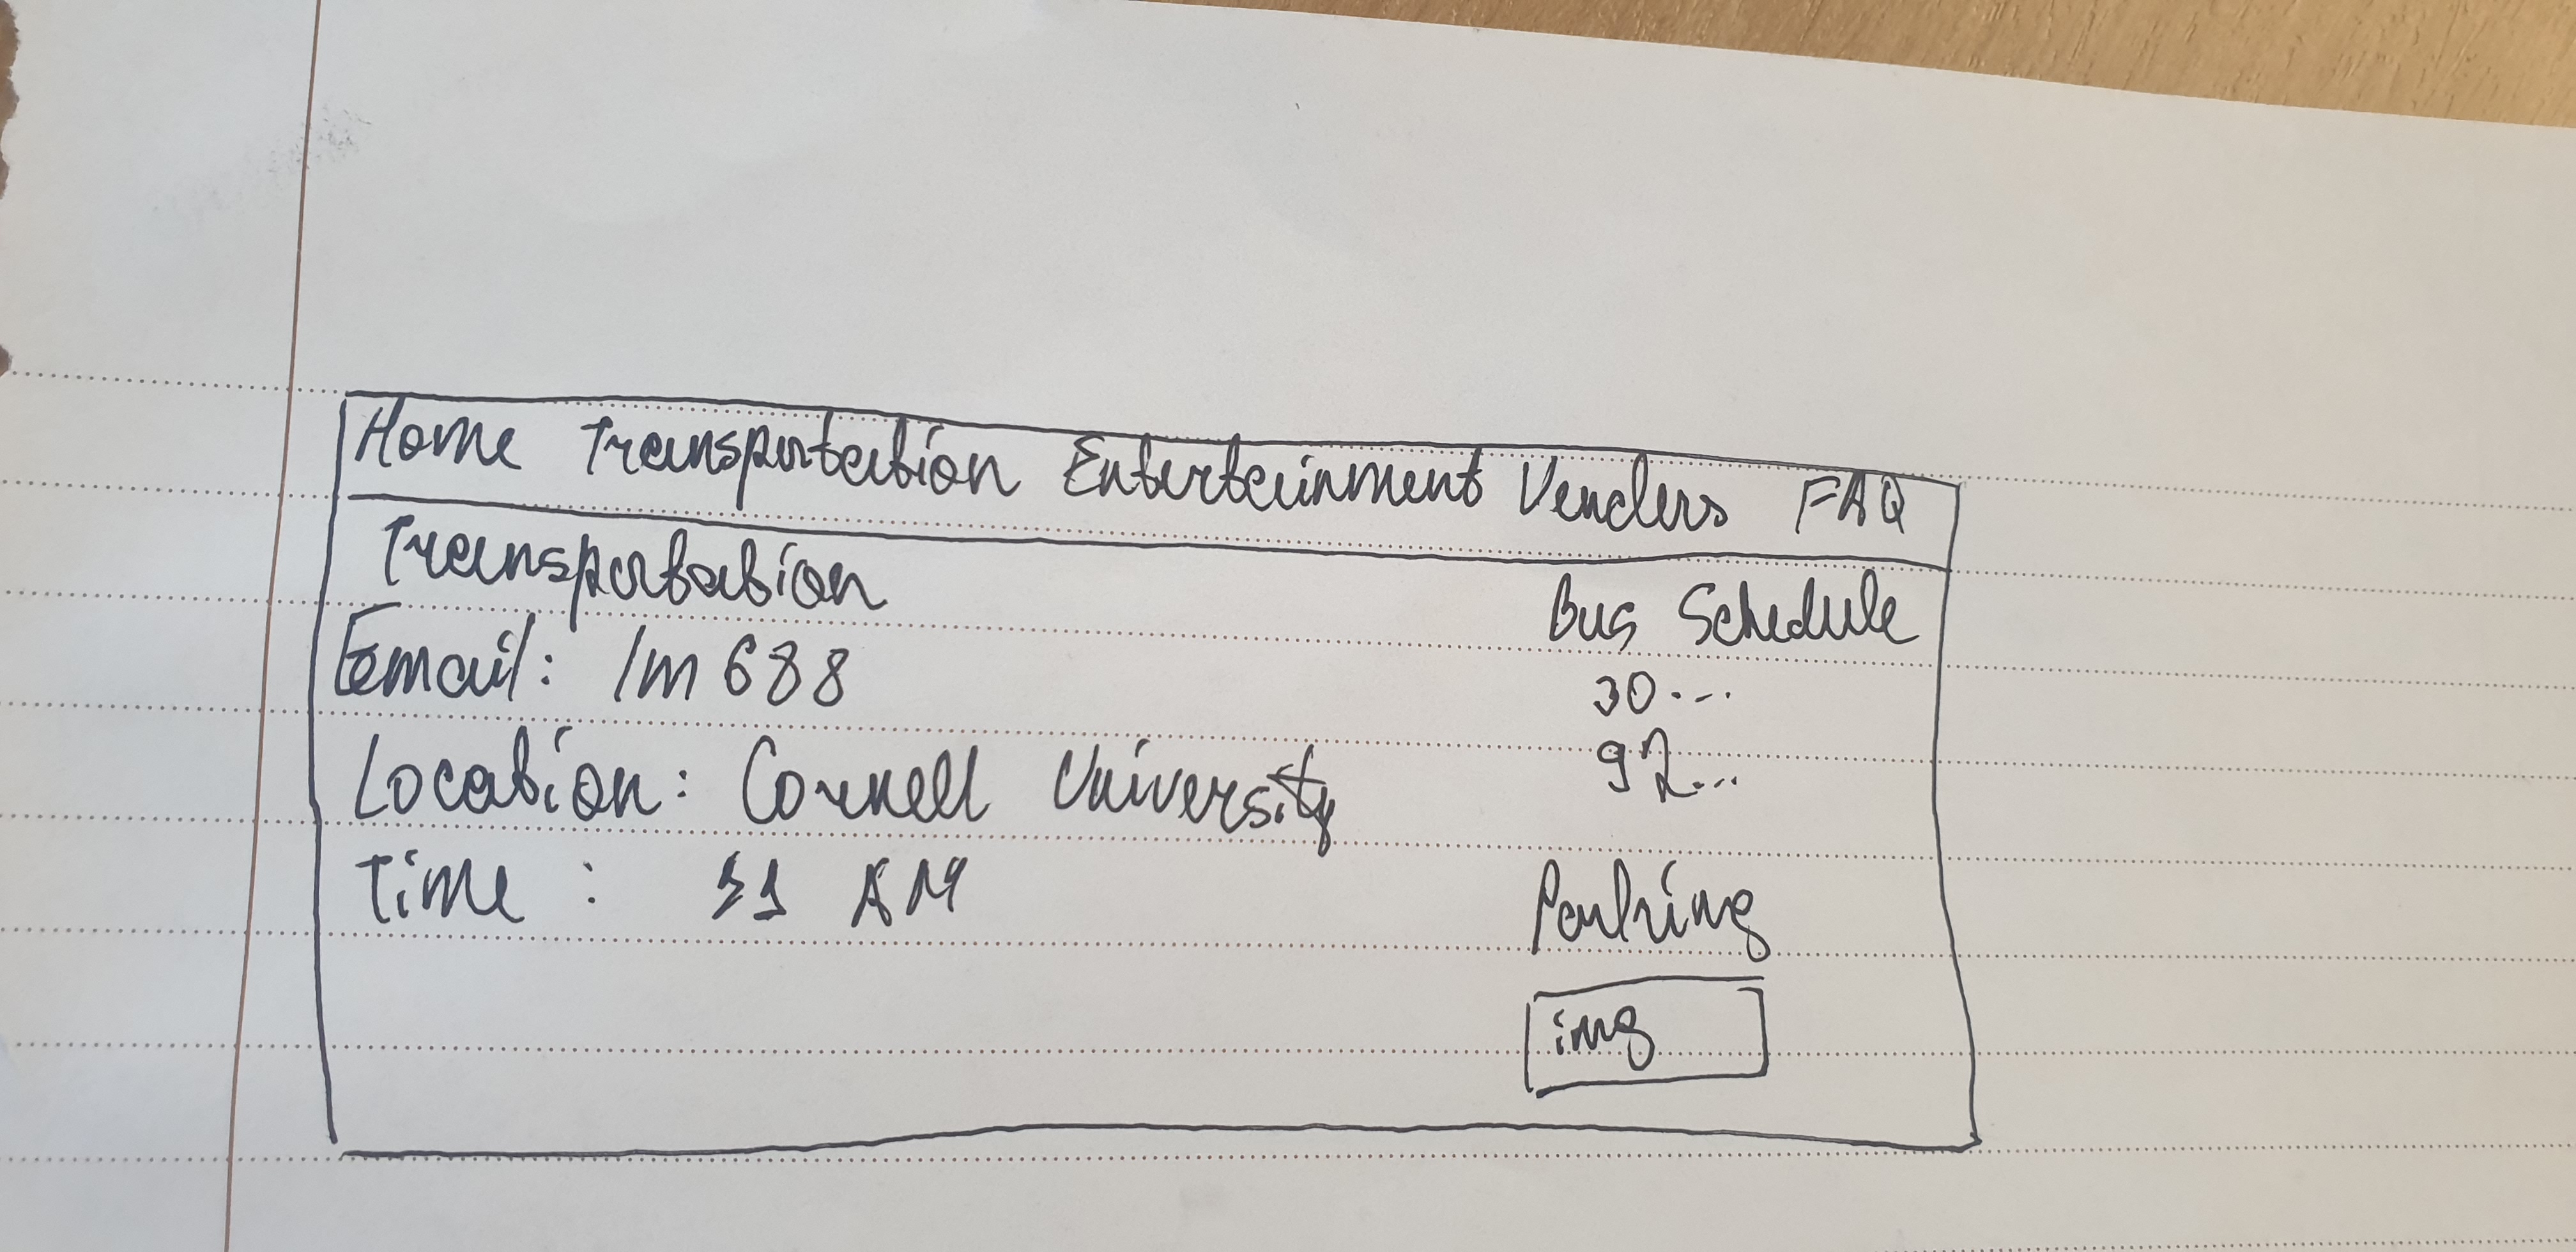 Home Transportation Entertainment Venders FAQ
Transportation
Email: lm688
Location: Cornell University
Time : 11 AM
Bus Schedule
30...
92...
Parking
img